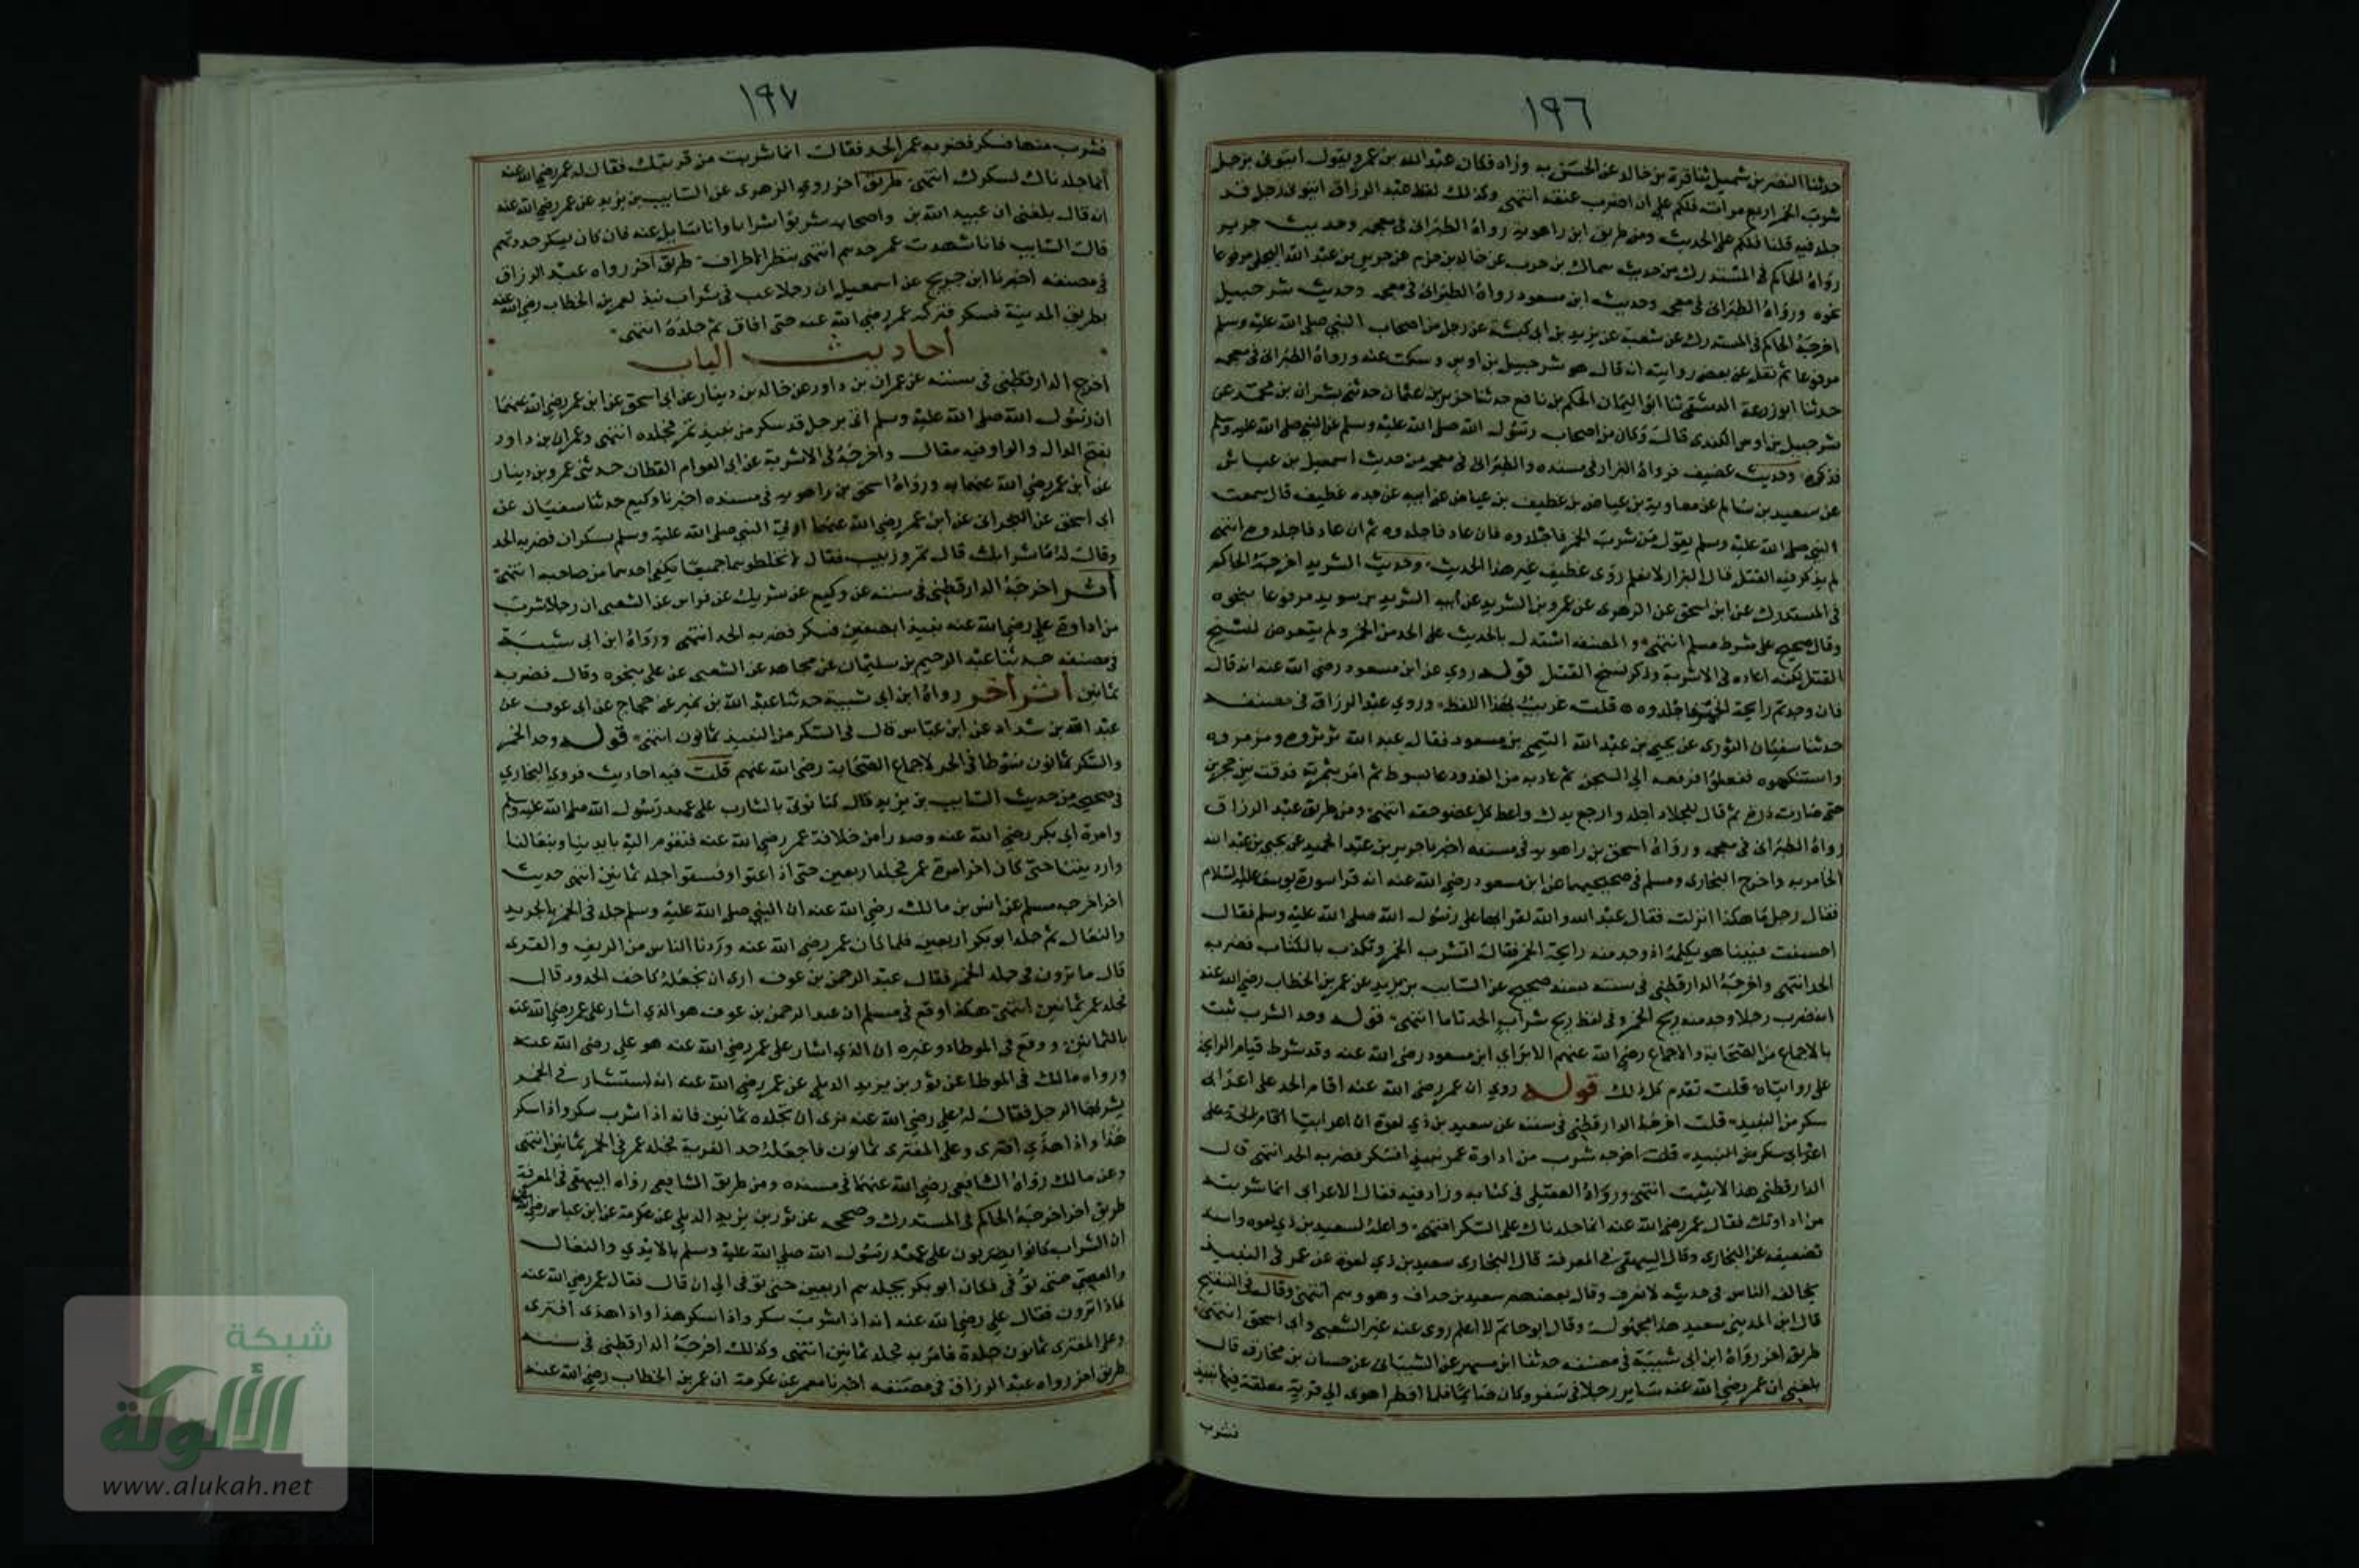 ١٩٦
حدثنا النضر بن شميل ثنا قرة بن خالد عن الحسن به وزاد فكان عبد الله بن عمرو يقول ايتوني برجل
شرب الخمر اربع مرات فلكم علي ان اضرب عنقه انتهى وكذلك لفظ عبد الرزاق ايتوني برجل قد
جلد فيه قلنا فلكم على الحديث ومن طريق ابن راهويه رواه الطبراني في معجمه وحديث جرير
رواه الحاكم في المستدرك من حديث سماك بن حرب عن خالد بن جرير عن جرير بن عبد الله البجلي مرفوعا
نحوه ورواه الطبراني في معجمه وحديث ابن مسعود رواه الطبراني في معجمه وحديث شرحبيل
اخرجه الحاكم في المستدرك عن شعبة عن يزيد بن ابي كبشة عن رجل من اصحاب النبي صلى الله عليه وسلم
مرفوعا ثم نقل عن بعض رواياته انه قال هو شرحبيل بن اوس وسكت عنه ورواه الطبراني في معجمه
حدثنا ابو زرعة الدمشقي ثنا ابو اليمان الحكم بن نافع حدثنا حريز بن عثمان حدثني بشران بن محمد عن
شرحبيل بن اوس الكندي قال وكان من اصحاب رسول الله صلى الله عليه وسلم عن النبي صلى الله عليه وسلم
فذكره وحديث غضيف فرواه البزار في مسنده والطبراني في معجمه من حديث اسمعيل بن عياش
عن سعيد بن سالم عن معاوية بن عياض بن غطيف بن عياض عن ابيه عن جده غطيف قال سمعت
النبي صلى الله عليه وسلم يقول من شرب الخمر فاجلدوه فان عاد فاجلدوه ثم ان عاد فاجلدوه انتهى
لم يذكر فيه القتل قال البزار لا نعلم روى غطيف غير هذا الحديث وحديث الشريد اخرجه الحاكم
في المستدرك عن ابن اسحق عن الزهري عن عمرو بن الشريد عن ابيه الشريد بن سويد مرفوعا بنحوه
وقال صحيح على شرط مسلم انتهى والمصنف استدل بالحديث على الحد من الخمر ولم يتعرض لنسخ
القتل لكنه اعاده في الاشربة وذكر نسخ القتل قوله روي عن ابن مسعود رضي الله عنه انه قال
فان وجدتم رايحة الخمر فاجلدوه قلت غريب بهذا اللفظ وروي عبد الرزاق في مصنفه
حدثنا سفيان الثوري عن يحيى بن عبد الله التيمي بن مسعود فقال عبد الله ترتروه ومزمزوه
واستنكهوه ففعلوا فرفعه الى السجن ثم عاد به من الغد ودعا بسوط ثم امر بثمرته فدقت بين حجرين
حتى صارت درة ثم قال للجلاد اجلد وارجع يدك واعط كل عضو حقه انتهى ومن طريق عبد الرزاق
رواه الطبراني في معجمه ورواه اسحق بن راهويه في مسنده اخبرنا جرير بن عبد الحميد عن يحيى بن عبد الله
الجابر به واخرج البخاري ومسلم في صحيحيهما عن ابن مسعود رضي الله عنه انه قرا سورة يوسف عليه السلام
فقال رجل ما هكذا انزلت فقال عبد الله والله لقراتها على رسول الله صلى الله عليه وسلم فقال
احسنت فبينا هو يكلمه اذ وجد منه رايحة الخمر فقال اتشرب الخمر وتكذب بالكتاب فضربه
الحد انتهى واخرجه الدارقطني في سننه بسند صحيح عن السايب بن يزيد عن عمر بن الخطاب رضي الله عنه
انه ضرب رجلا وجد منه ريح الخمر وفي لفظ ريح شراب الحد تاما انتهى قوله وحد الشرب ثبت
بالاجماع من الصحابة والاجماع رضي الله عنهم الا براي ابن مسعود رضي الله عنه وقد شرط قيام الرايحة
على روايتاه قلت تقدم كل ذلك قوله روي ان عمر رضي الله عنه اقام الحد على اعرابي
سكر من النبيذ قلت اخرجه الدارقطني في سننه عن سعيد بن ذي لعوة ان اعرابيا اقام الحد على
اعرابي سكر من النبيذ قلت اخرجه شرب من اداوة عمر نبيذا فسكر فضربه الحد انتهى قال
الدارقطني هذا لا يثبت انتهى ورواه العقيلي في كتابه وزاد فيه فقال الاعرابي انما شربته
من اداوتك فقال عمر رضي الله عنه انما جلدناك على السكر انتهى واعله لسعيد بن ذي لعوه واسند
تضعيفه عن البخاري وقال البيهقي في المعرفة قال البخاري سعيد بن ذي لعوة عن عمر في النبيذ
يخالف الناس في حديثه لا نعرف وقال بعضهم سعيد بن حداف وهو وهم انتهى وقال في التنقيح
قال ابن المديني سعيد هذا مجهول وقال ابو حاتم لا اعلم روى عنه غير الشعبي وابي اسحق انتهى
طريق اخر رواه ابن ابي شيبة في مصنفه حدثنا ابن مسهر عن الشيباني عن حسان بن مخارق قال
بلغني ان عمر رضي الله عنه ساير رجلا في سفر وكان صايما فلما افطر اهوى الى قربة معلقة فيها نبيذ
فشرب
١٩٧
فشرب منها فسكر فضربه عمر الحد فقال انما شربت من قربتك فقال له عمر رضي الله عنه
انما جلدناك لسكرك انتهى طريق اخر روي الزهري عن السايب بن يزيد عن عمر رضي الله عنه
انه قال بلغني ان عبيد الله بن واصحابه شربوا شرابا وانا سايل عنه فان كان يسكر حددتهم
قال السايب فانا شهدت عمر حدهم انتهى ينظر الاطراف طريق آخر رواه عبد الرزاق
في مصنفه اخبرنا ابن جريج عن اسمعيل ان رجلا عب في شراب نبذ لعمر بن الخطاب رضي الله عنه
بطريق المدينة فسكر فتركه عمر رضي الله عنه حتى افاق ثم جلده انتهى
أحاديث الباب
اخرج الدارقطني في سننه عن عمران بن داور عن خالد بن دينار عن ابي اسحق عن ابن عمر رضي الله عنهما
ان رسول الله صلى الله عليه وسلم اتى برجل قد سكر من نبيذ تمر فجلده انتهى وعمران بن داور
بفتح الدال والواو فيه مقال واخرجه في الاشربة عن ابي العوام القطان حدثني عمرو بن دينار
عن ابن عمر رضي الله عنهما به ورواه اسحق بن راهويه في مسنده اخبرنا وكيع حدثنا سفيان عن
ابي اسحق عن النجراني عن ابن عمر رضي الله عنهما اوتي النبي صلى الله عليه وسلم بسكران فضربه الحد
وقال له ما شرابك قال تمر وزبيب فقال لا تخلطوهما جميعا يكفي احدهما من صاحبه انتهى
أثر اخرجه الدارقطني في سننه عن وكيع عن شريك عن فراس عن الشعبي ان رجلا شرب
من اداوة علي رضي الله عنه نبيذا بصفين فسكر فضربه الحد انتهى ورواه ابن ابي شيبة
في مصنفه حدثنا عبد الرحيم بن سليمان عن مجاهد عن الشعبي عن علي بنحوه وقال فضربه
ثمانين أثر أخر رواه ابن ابي شيبة حدثنا عبد الله بن نمير عن حجاج عن ابي عوف عن
عبد الله بن شداد عن ابن عباس قال في السكر من النبيذ ثمانون انتهى قوله وحد الخمر
والسكر ثمانون سوطا في الحر لاجماع الصحابة رضي الله عنهم قلت فيه احاديث فروي البخاري
في صحيحه من حديث السايب بن يزيد قال كنا نوتى بالشارب على عهد رسول الله صلى الله عليه وسلم
وامرة ابي بكر رضي الله عنه وصدرا من خلافة عمر رضي الله عنه فنقوم اليه بايدينا ونعالنا
وارديتنا حتى كان اخر امرة عمر فجلد اربعين حتى اذا عتوا وفسقوا جلد ثمانين انتهى حديث
اخر اخرجه مسلم عن انس بن مالك رضي الله عنه ان النبي صلى الله عليه وسلم جلد في الخمر بالجريد
والنعال ثم جلد ابو بكر اربعين فلما كان عمر رضي الله عنه وردنا الناس من الريف والقرى
قال ما ترون في جلد الخمر فقال عبد الرحمن بن عوف ارى ان تجعله كاخف الحدود قال
فجلد عمر ثمانين انتهى هكذا وقع في مسلم ان عبد الرحمن بن عوف هو الذي اشار على عمر رضي الله عنه
بالثمانين ووقع في الموطاء وغيره ان الذي اشار على عمر رضي الله عنه هو علي رضي الله عنه
ورواه مالك في الموطا عن ثور بن يزيد الديلي عن عمر رضي الله عنه انه استشار في الخمر
يشربها الرجل فقال له علي رضي الله عنه نرى ان تجلده ثمانين فانه اذا شرب سكر واذا سكر
هذا واذا هذي افترى وعلى المفتري ثمانون فاجعله حد الفرية فجلد عمر في الخمر ثمانين انتهى
وعن مالك رواه الشافعي رضي الله عنهما في مسنده ومن طريق الشافعي رواه البيهقي في المعرفة
طريق اخر اخرجه الحاكم في المستدرك وصححه عن ثور بن يزيد الديلي عن عكرمة عن ابن عباس رضي الله عنهما
ان الشراب كانوا يضربون على عهد رسول الله صلى الله عليه وسلم بالايدي والنعال
والعصي حتى توفي فكان ابو بكر يجلدهم اربعين حتى توفي الى ان قال فقال عمر رضي الله عنه
ماذا ترون فقال علي رضي الله عنه انه اذا شرب سكر واذا سكر هذا واذا هذى افترى
وعلى المفترى ثمانون جلدة فامر به فجلد ثمانين انتهى وكذلك اخرجه الدارقطني في سننه
طريق اخر رواه عبد الرزاق في مصنفه اخبرنا معمر عن عكرمة ان عمر بن الخطاب رضي الله عنه
شبكة
الألوكة
www.alukah.net